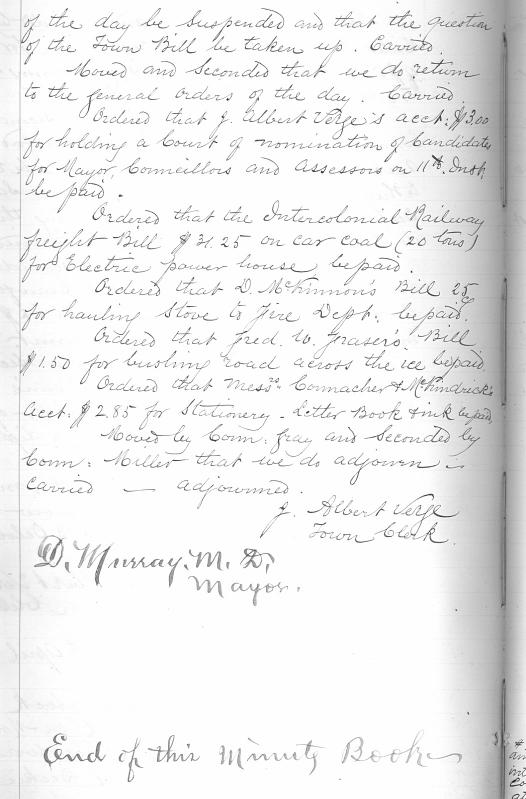 of the day be Suspended and that the question
of the Town Bill be taken up. Carried.
Moved and Seconded that we do return
to the general orders of the day. Carried
Ordered that J. Albert Verge's acct. $3.00
for holding a Court of nomination of Candidates
for Mayor, Councillors and Assessors on 11th. Inst
be paid.
Ordered that the Intercolonial Railway
freight Bill $31.25 on car coal (20 tons)
for Electric power house be paid.
Ordered that D. McKinnon's Bill 25¢
for hauling Stove to Fire Dept. be paid.
Ordered that Fred. W. Fraser's. Bill
$1.50 for bushing road across the ice be paid.
Ordered that Messrs. Connacher & McKindrick's
acct. $2.85 for Stationery - Letter Book & ink be paid
Moved by Coun: Gray and Seconded by
Coun: Miller that we do adjourn is
carried — adjourned.
J. Albert Verge
Town Clerk.
D. Murray, M. D,
Mayor.
End of this Minute Book